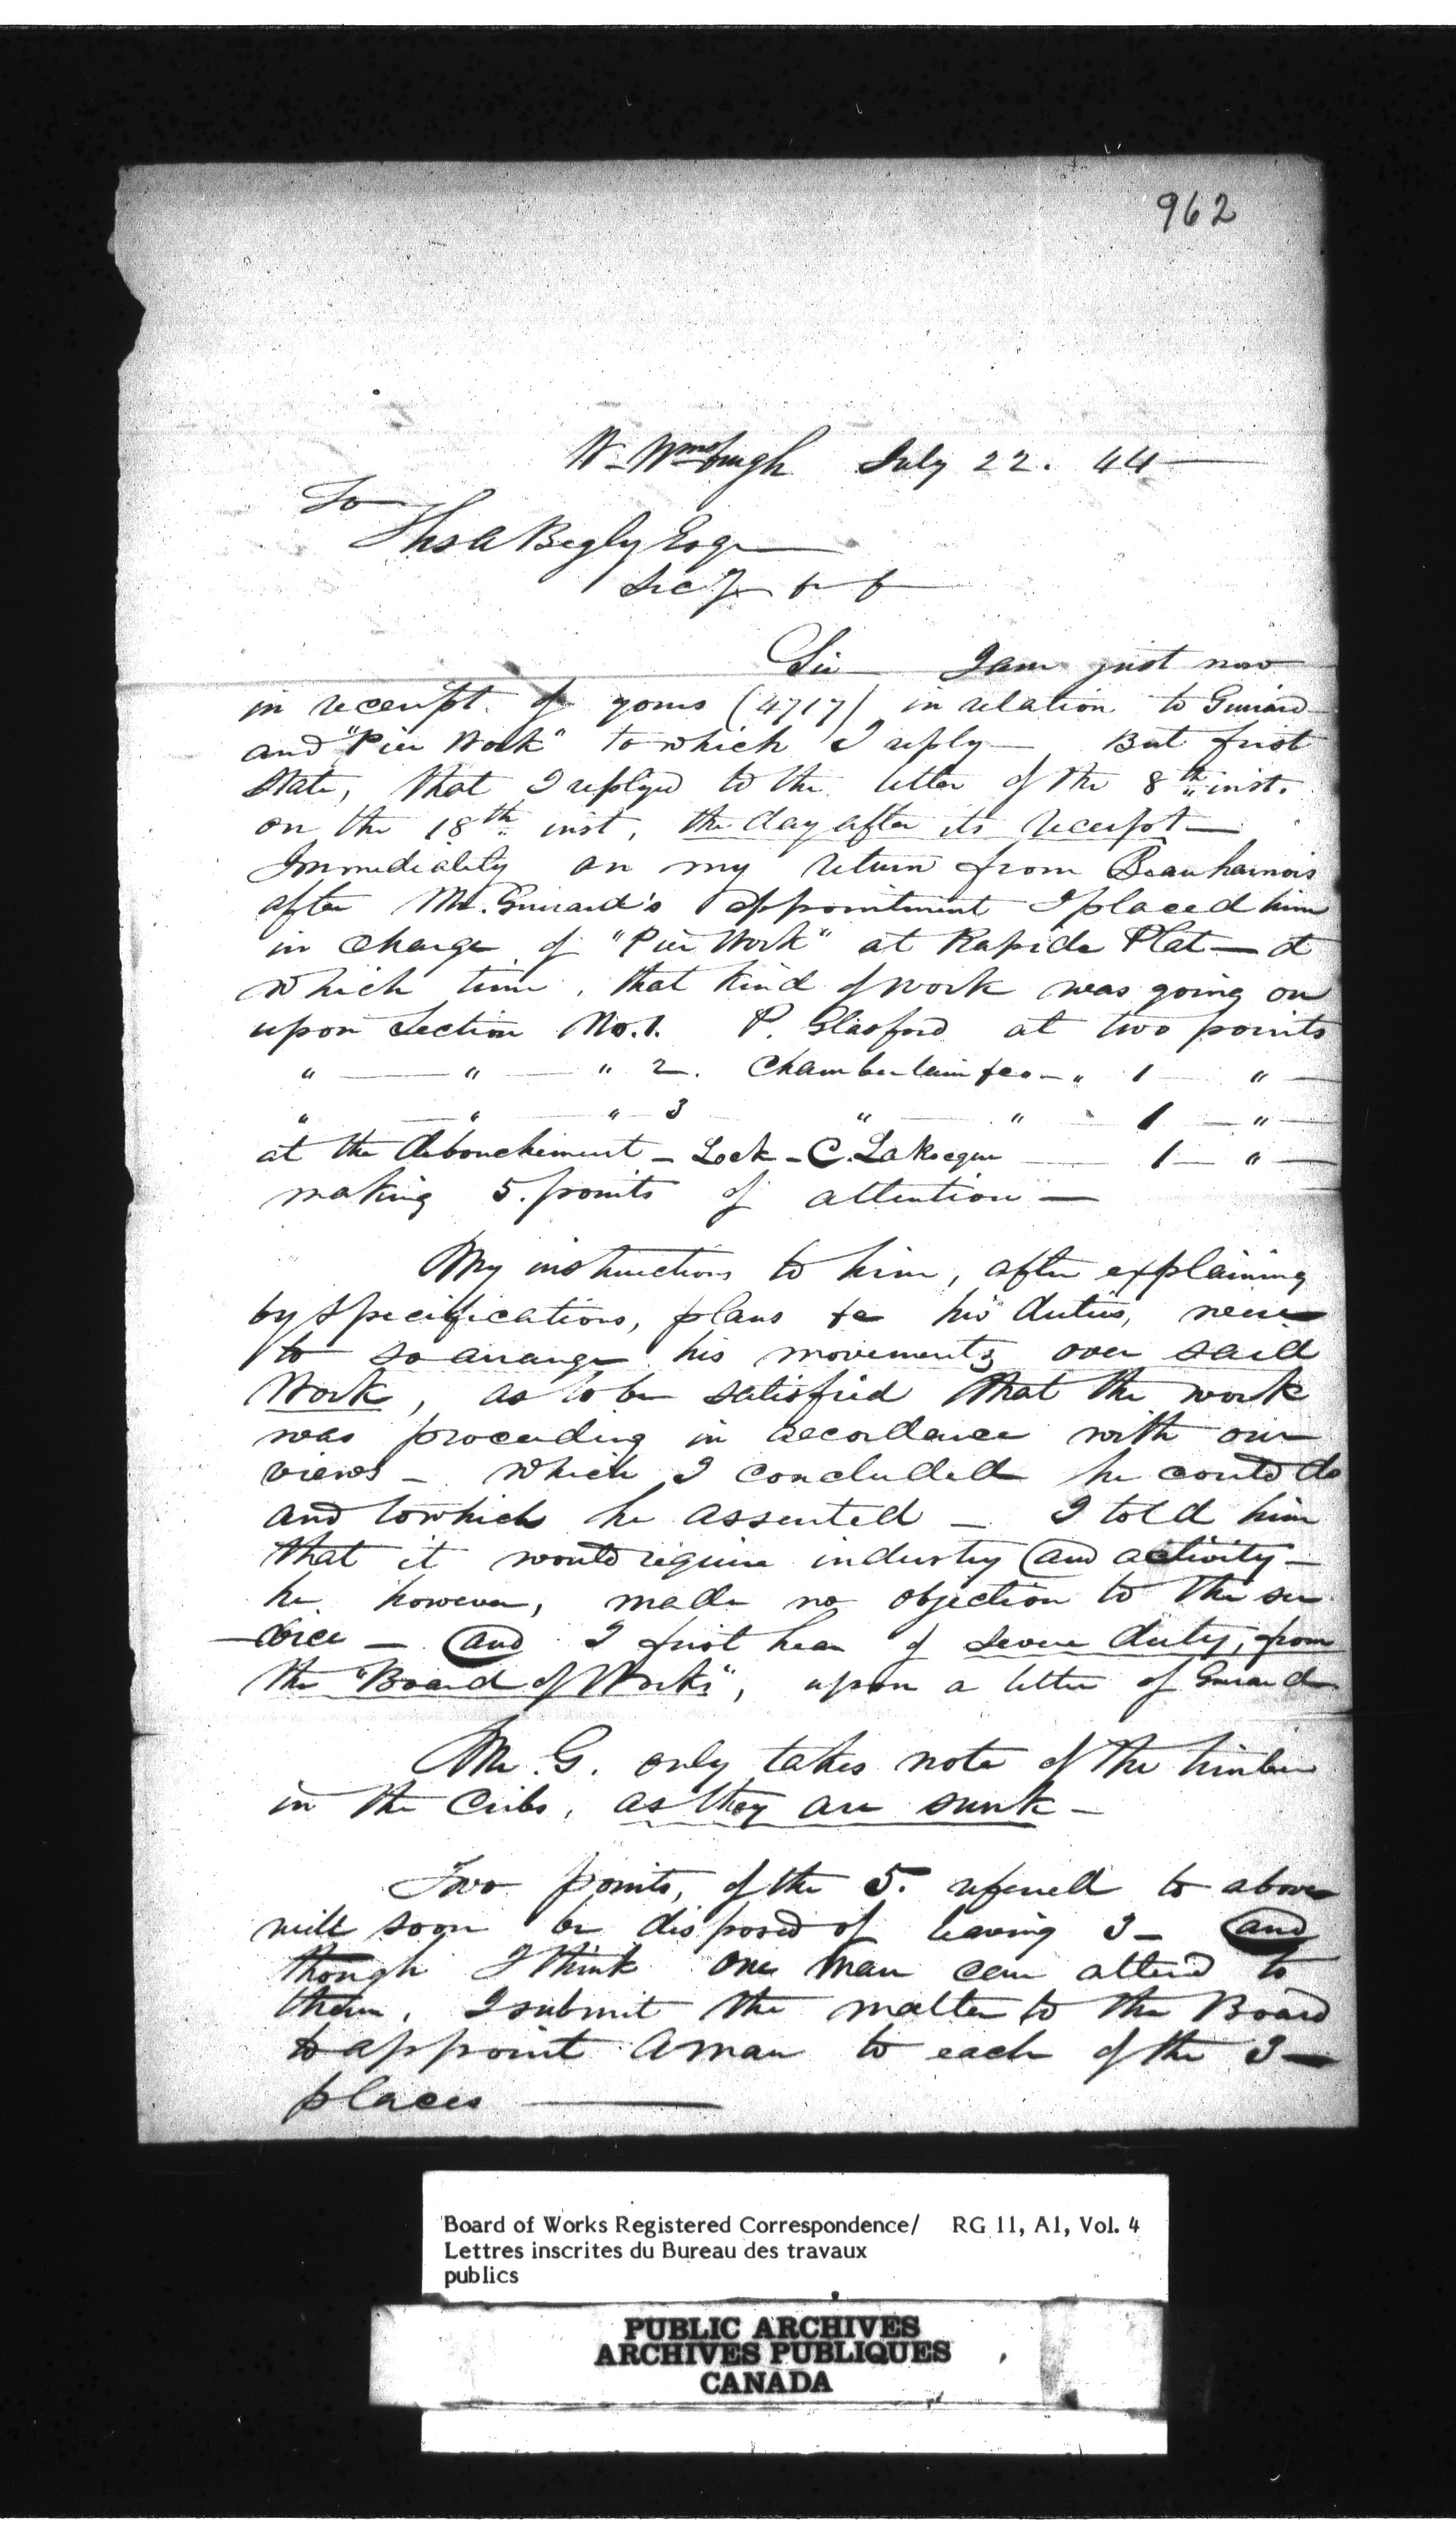 962
W. Wmsburgh July 22. 44
To
Thos A Begly Esqr
Secy &c &c
Sir I am just now
in receipt of yours (4717) in relation to Guirard
and "Pier Work" to which I reply — But first
state, that I replyed to the letter of the 8th inst.
on the 18th inst, the day after its receipt —
Immediality on my return from Beauharnois
after Mr. Guirard's appointment I placed him
in charge of "Pier Work" at Rapide Plat — at
which time, that kind of work was going on
upon Section No. 1. P. Glasford at two points
" — " — " 2. Chamberlain &co — " 1 — "
" — " — " 3 " — " 1 — "
at the debouchement — Lock — C. LaRocque — 1 — "
making 5. points of attention —
My instructions to him, after explaining
by specifications, plans &c his duties, were
to so arrange his movements over said
Work, as to be satisfied that the work
was proceeding in accordance with our
views — which I concluded he could do
and to which he assented — I told him
that it would require industry and activity —
he however, made no objection to the ser
-vice — and I first hear of severe duty, from
the "Board of Works", upon a letter of Guirard
Mr. G. only takes note of the timber
in the Cribs, as they are sunk —
Two points, of the 5. referred to above
will soon be disposed of leaving 3 — and
though I think one man can attend to
them, I submit the matter to the Board
to appoint a man to each of the 3 —
places —
Board of Works Registered Correspondence/ RG 11, A1, Vol. 4
Lettres inscrites du Bureau des travaux
publics
PUBLIC ARCHIVES
ARCHIVES PUBLIQUES
CANADA